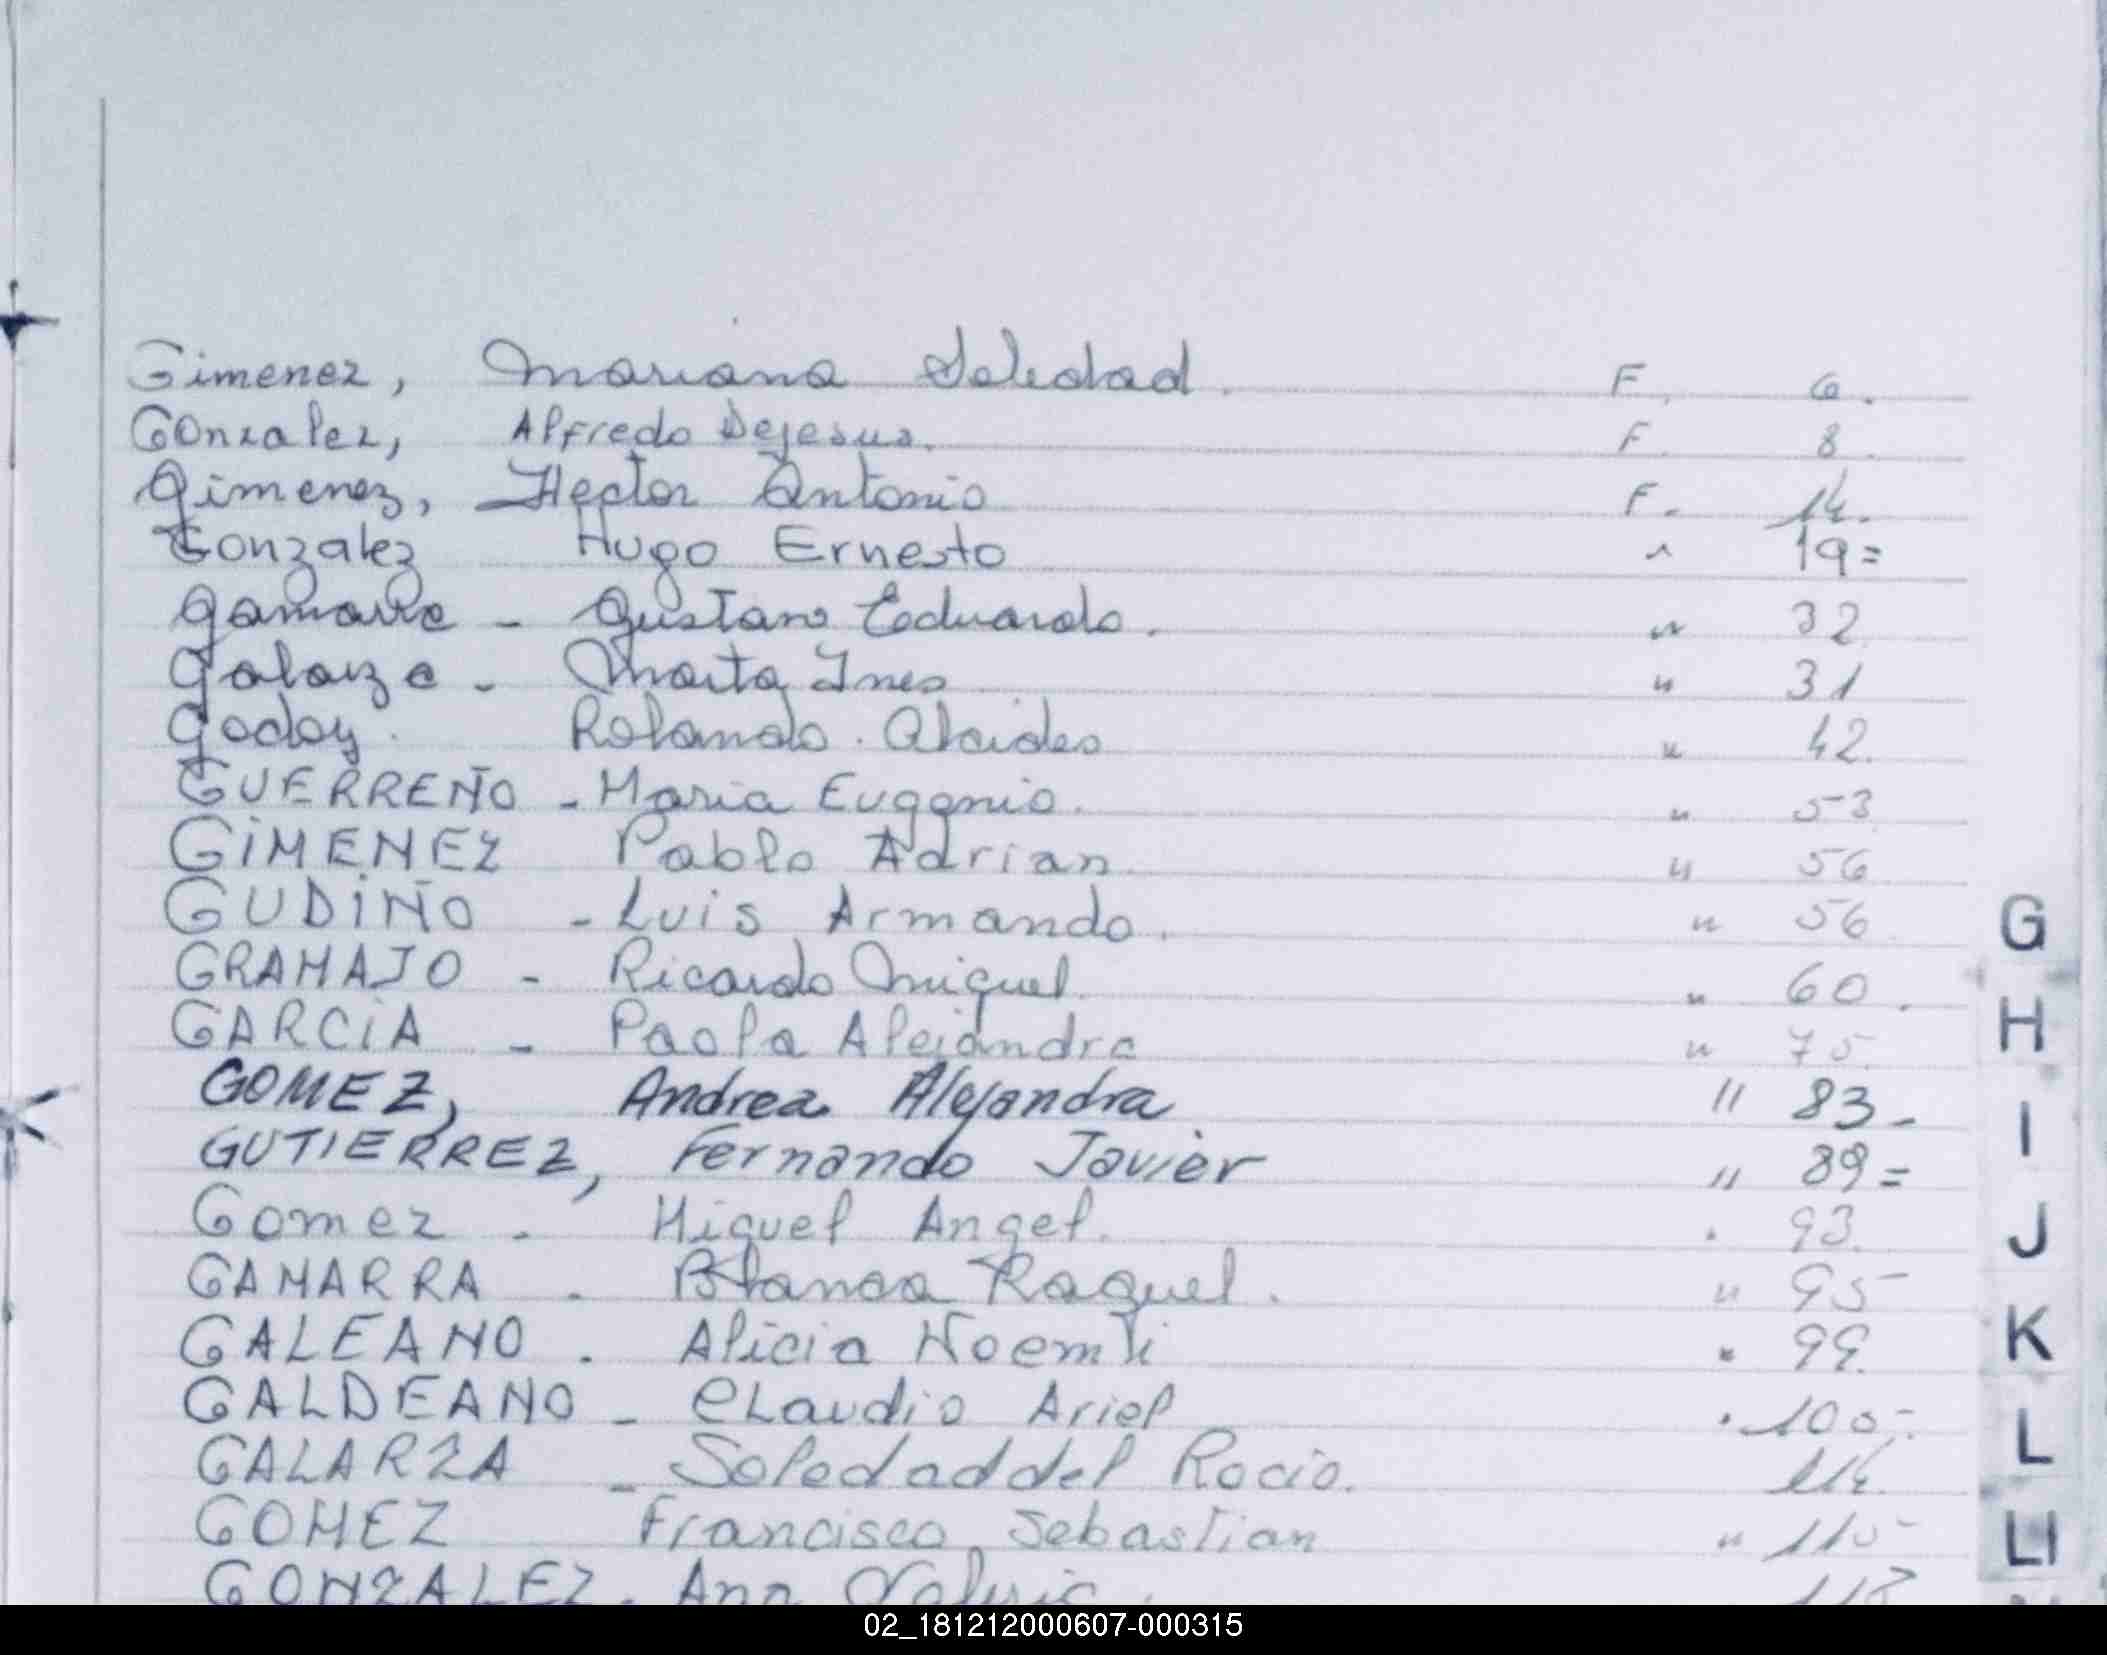 Gimenez, Mariana Soledad. F. 6.
Gonzalez, Alfredo Dejesus. F. 8.
Gimenez, Hector Antonio F. 14.
Gonzalez Hugo Ernesto " 19=
Gamarra - Gustavo Eduardo. " 32
Galarza - Marta Ines " 31
Godoy. Rolando. Alcides " 42.
GUERREÑO - Maria Eugenia. " 53
GIMENEZ Pablo Adrian. " 56
GUDIÑO - Luis Armando. " 56
GRAMAJO - Ricardo Miguel. " 60.
GARCIA - Paola Alejandra " 75.
GOMEZ, Andrea Alejandra " 83-
GUTIERREZ, Fernando Javier " 89=
Gomez - Miguel Angel. " 93.
GAMARRA - Blanca Raquel. " 95
GALEANO. Alicia Noemi " 99.
GALDEANO - CLaudio Ariel . 100-
GALARZA - Soledad del Rocio. 114.
GOMEZ Francisco Sebastian " 115
GONZALEZ. Ana Valeria.
G
H
I
J
K
L
Ll
02_181212000607-000315